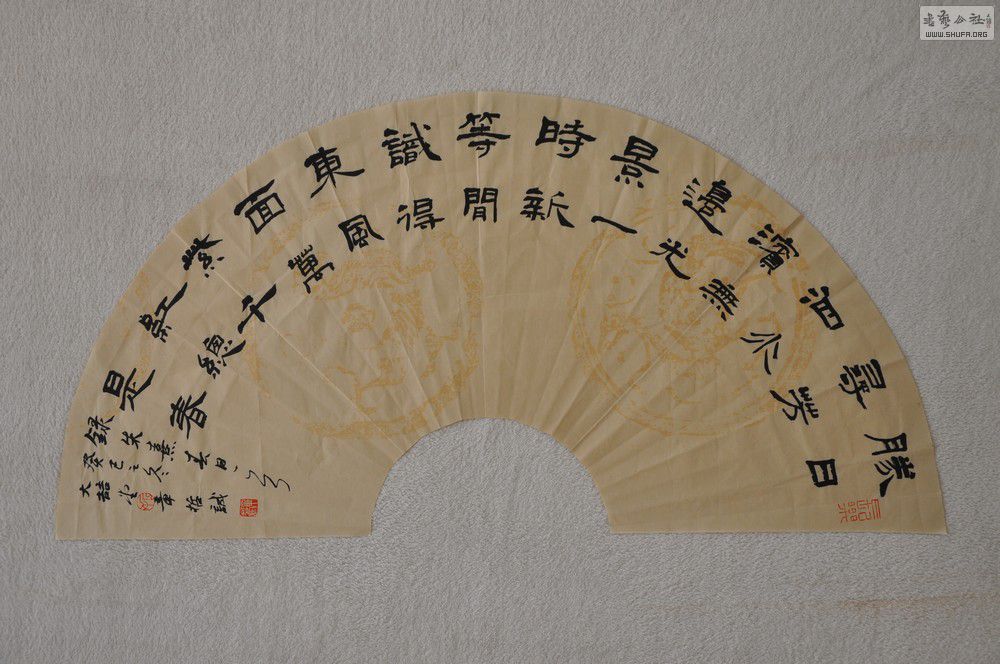 書藝公社
WWW.SHUFA.ORG
勝日
尋芳
泗水
濱無
邊光
景一
時新
等閒
識得
東風
面萬
紫千
紅總
是春
錄朱熹春日
癸巳之冬
大喆堂
哲誠